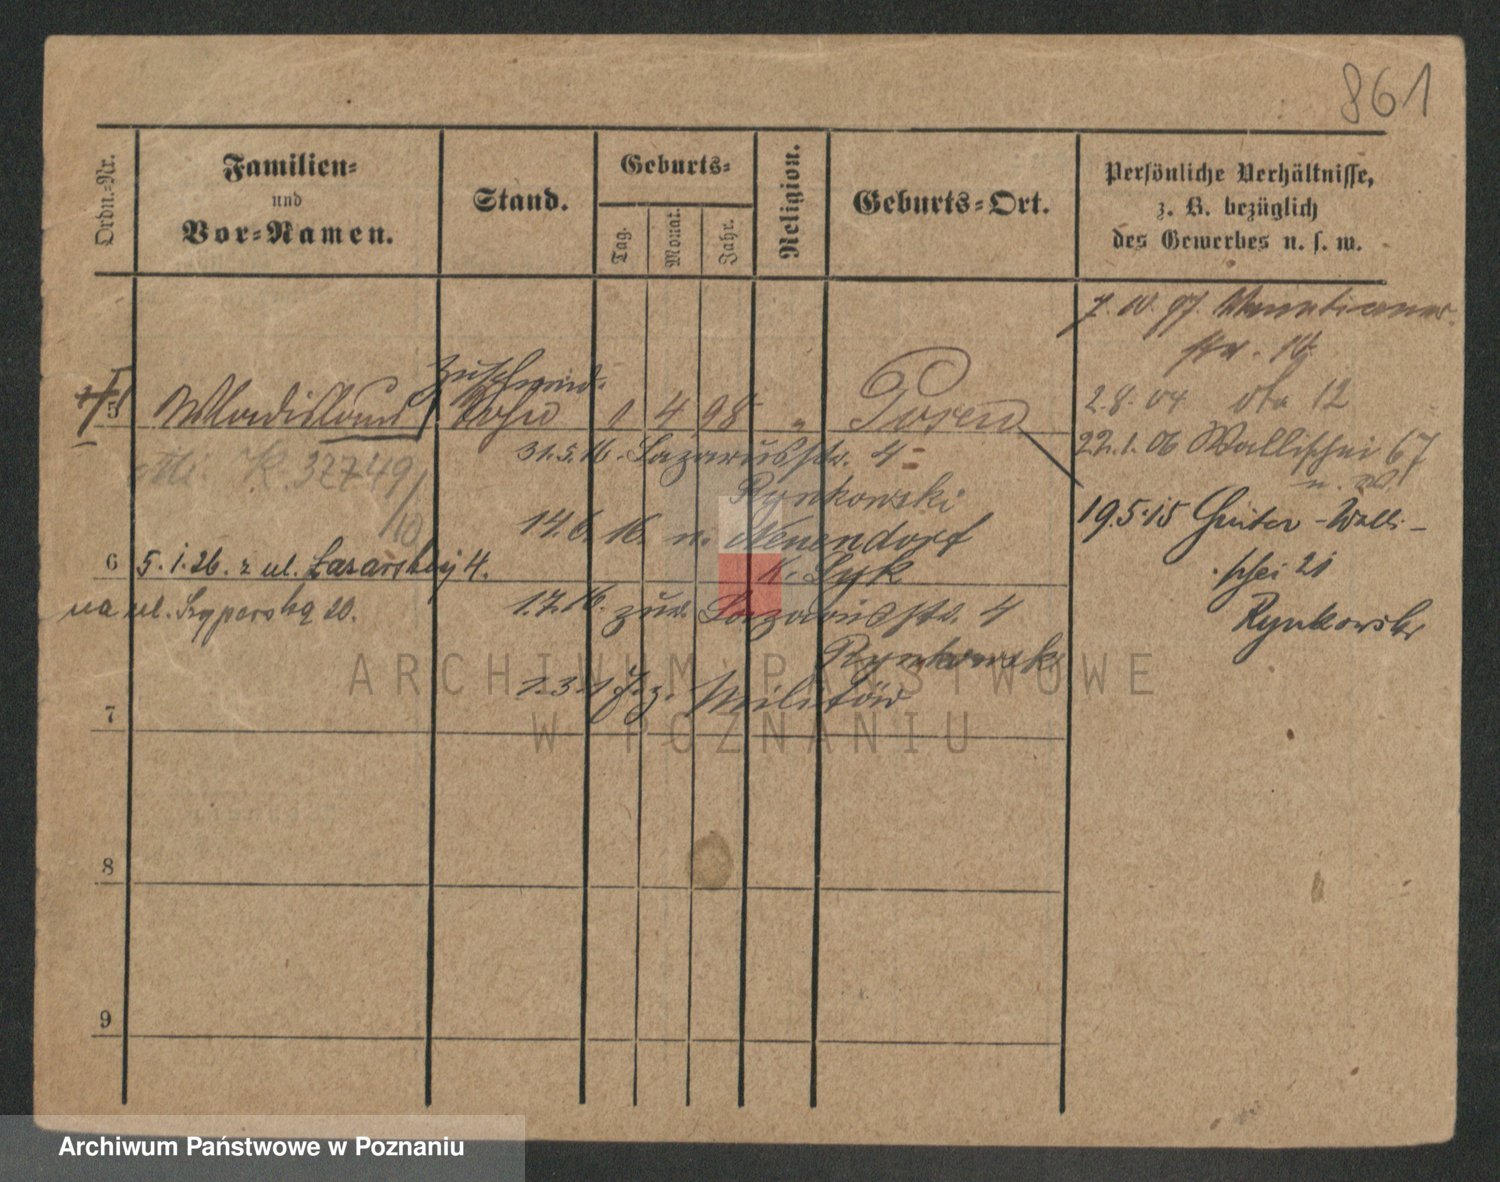 861
Ordn.-Nr.
Familien-
und
Vor-Namen.
Stand.
Geburts-
Tag.
Monat.
Jahr.
Religion.
Geburts-Ort.
Persönliche Verhältnisse,
z. B. bezüglich
des Gewerbes u. s. w.
7. 10. 97. Venetianer-
str. 16
5 Wladislaus Sohn 1 4 98 " Posen
2.8.04 12
22.1.06 Wallischei 67
31.5.16. Lazarusstr. 4
K. 32749
Rynkowski
19.5.15 Hinter-Walli-
schei 21
Rynkowski
14.6.16. n. Neuendorf
K. Lyk
6 5.1.26. z ul. Łazarskiej 4.
na ul. Szyperską 20.
1.7.16. zur. Lazarusstr. 4
Rynkowski
1.3.17. z. Militär
7
8
9
ARCHIWUM PAŃSTWOWE
W POZNANIU
Archiwum Państwowe w Poznaniu